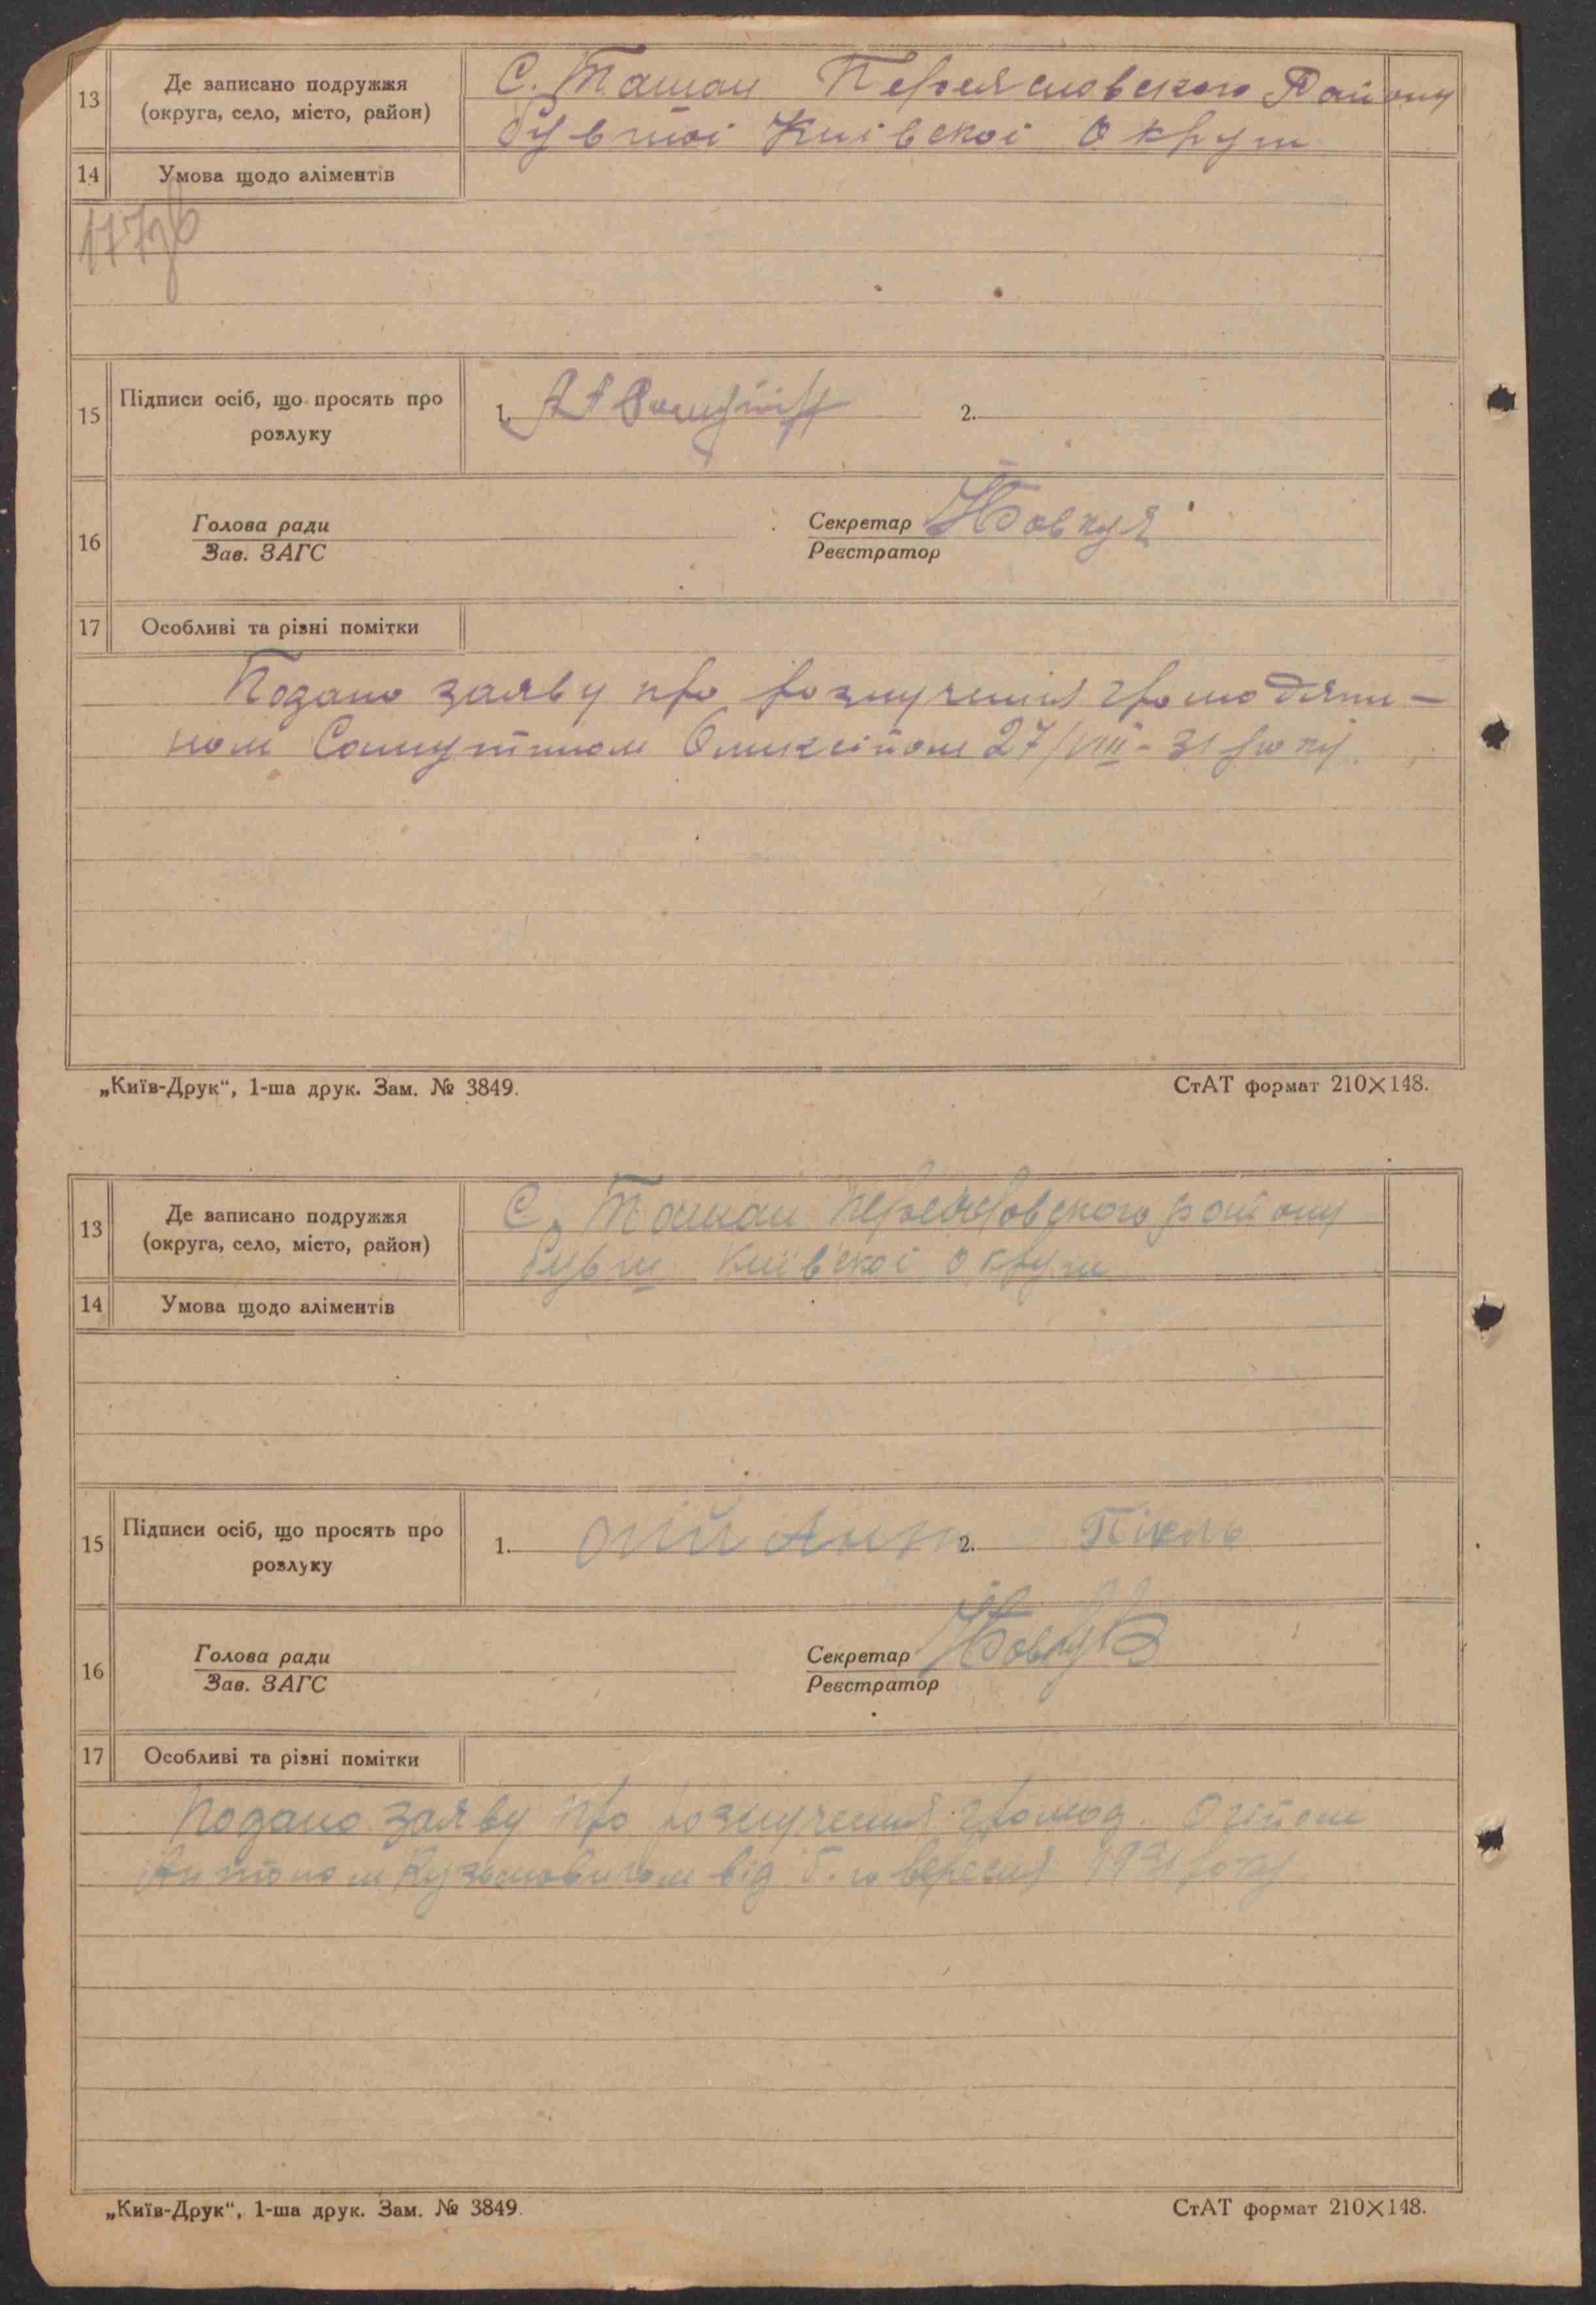 13
Де записано подружжя
(округа, село, місто, район)
С. Ташан Переяславского Району
бувшої Київскої Округи
14
Умова щодо аліментів
15
Підписи осіб, що просять про
розлуку
1.
2.
16
Голова ради
Зав. ЗАГС
Секретар
Реєстратор
Н Бовкун
17
Особливі та різні помітки
Подано заяву про розлучення громодяни-
ном Оликсійом 27/VIII - 31 року.
„Київ-Друк“, 1-ша друк. Зам. № 3849.
СтАТ формат 210×148.
13
Де записано подружжя
(округа, село, місто, район)
С. Ташан району
Київскої округи
14
Умова щодо аліментів
15
Підписи осіб, що просять про
розлуку
1.
2.
16
Голова ради
Зав. ЗАГС
Секретар
Реєстратор
17
Особливі та різні помітки
Подано заяву про розлучення громод. Огійом
Антоном Кузьмовичом від вересня 1931 року
„Київ-Друк“, 1-ша друк. Зам. № 3849.
СтАТ формат 210×148.